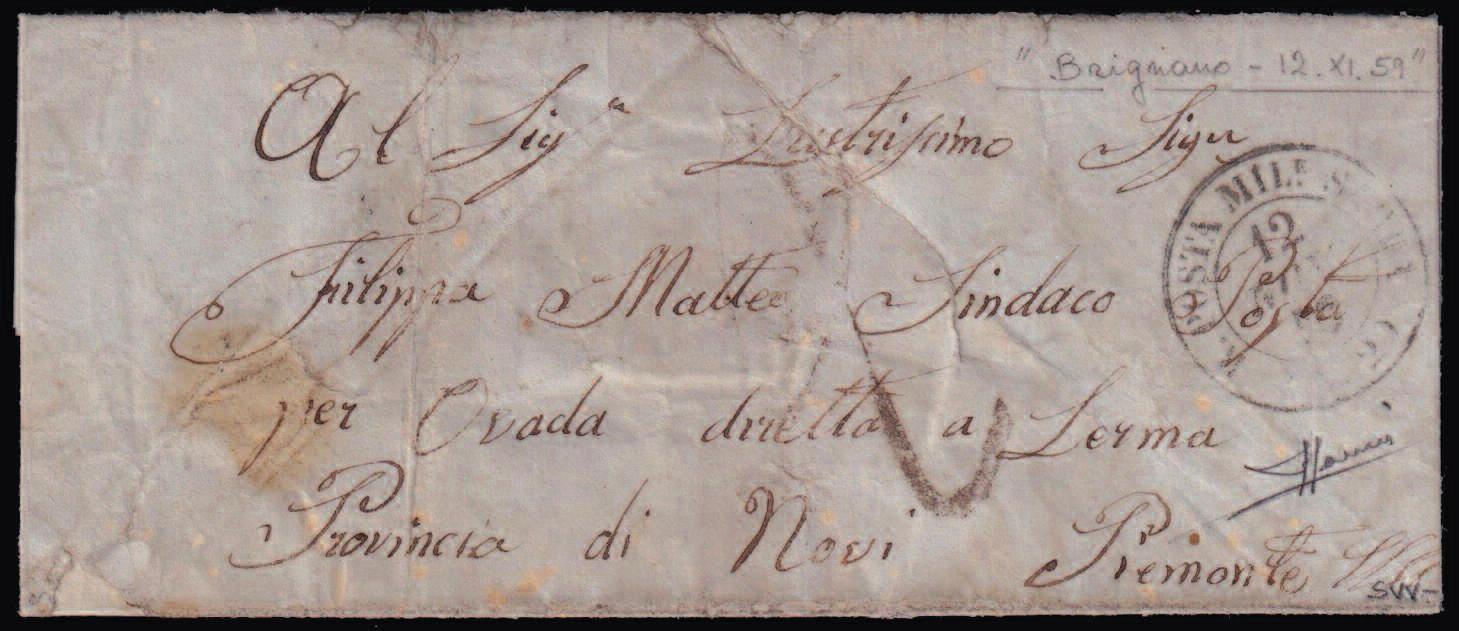 "Brignano - 12. XI. 59"
Al Sigr Lustrissimo Sigr
Filippa Matteo Sindaco Posta
per Ovada diretta a Lerma
Provincia di Novi Piemonte
POSTA MIL
12
SW-